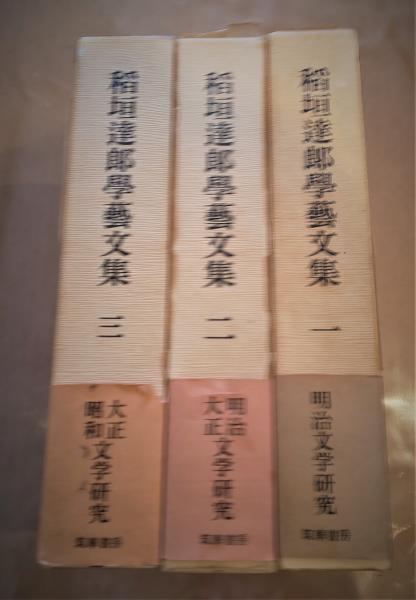 稻垣達郎學藝文集 一
明治文学研究
筑摩書房
稻垣達郎學藝文集 二
明治大正文学研究
筑摩書房
稻垣達郎學藝文集 三
大正昭和文学研究
筑摩書房